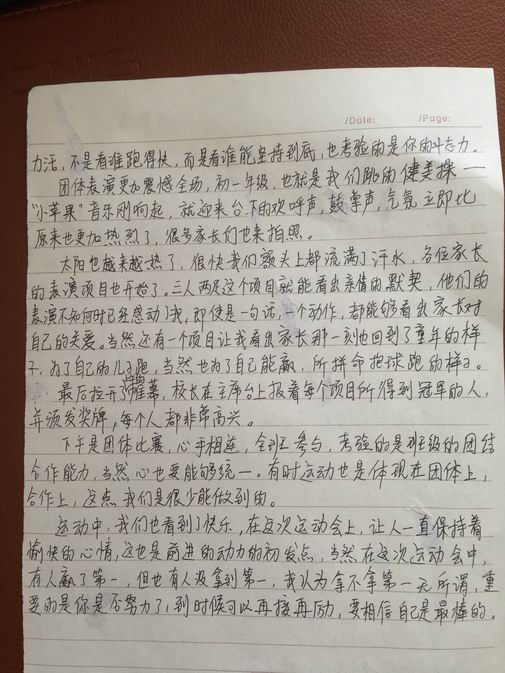 /Date: /Page:
力活，不是看谁跑得快，而是看谁能坚持到底，也考验的是你的斗志力。
团体表演更加震憾全场，初一年级，也就是我们跳的健美操——
“小苹果”音乐刚响起，就迎来台下的欢呼声，鼓掌声，气氛立即比
原来也更加热烈了，很多家长们也来拍照。
太阳也越来越热了，很快我们额头上都流满了汗水，各位家长
的表演项目也开始了。三人两足这个项目就能看出亲情的默契，他们的
表演不知何时已经感动了我，即使是一句话，一个动作，都能够看出家长对
自己的关爱。当然还有一个项目让我看出家长那一刻也回到了童年的样
子，为了自己的儿子跑，当然也为了自己能赢，所拼命抱球跑的样子。
最后拉开了帷幕，校长在主席台上报着每个项目所得到冠军的人，
并颁发奖牌，每个人都非常高兴。
下午是团体比赛，心手相连，全班参与，考验的是班级的团结
合作能力，当然心也要能够统一。有时运动也是体现在团体上，
合作上，这点我们是很少能做到的。
运动中，我们也看到了快乐，在这次运动会上，让人一直保持着
愉快的心情，这也是前进的动力的初发点，当然在这次运动会中，
有人赢了第一，但也有人没拿到第一，我认为拿不拿第一无所谓，重
要的是你是否努力了，到时候可以再接再励，要相信自己是最棒的。